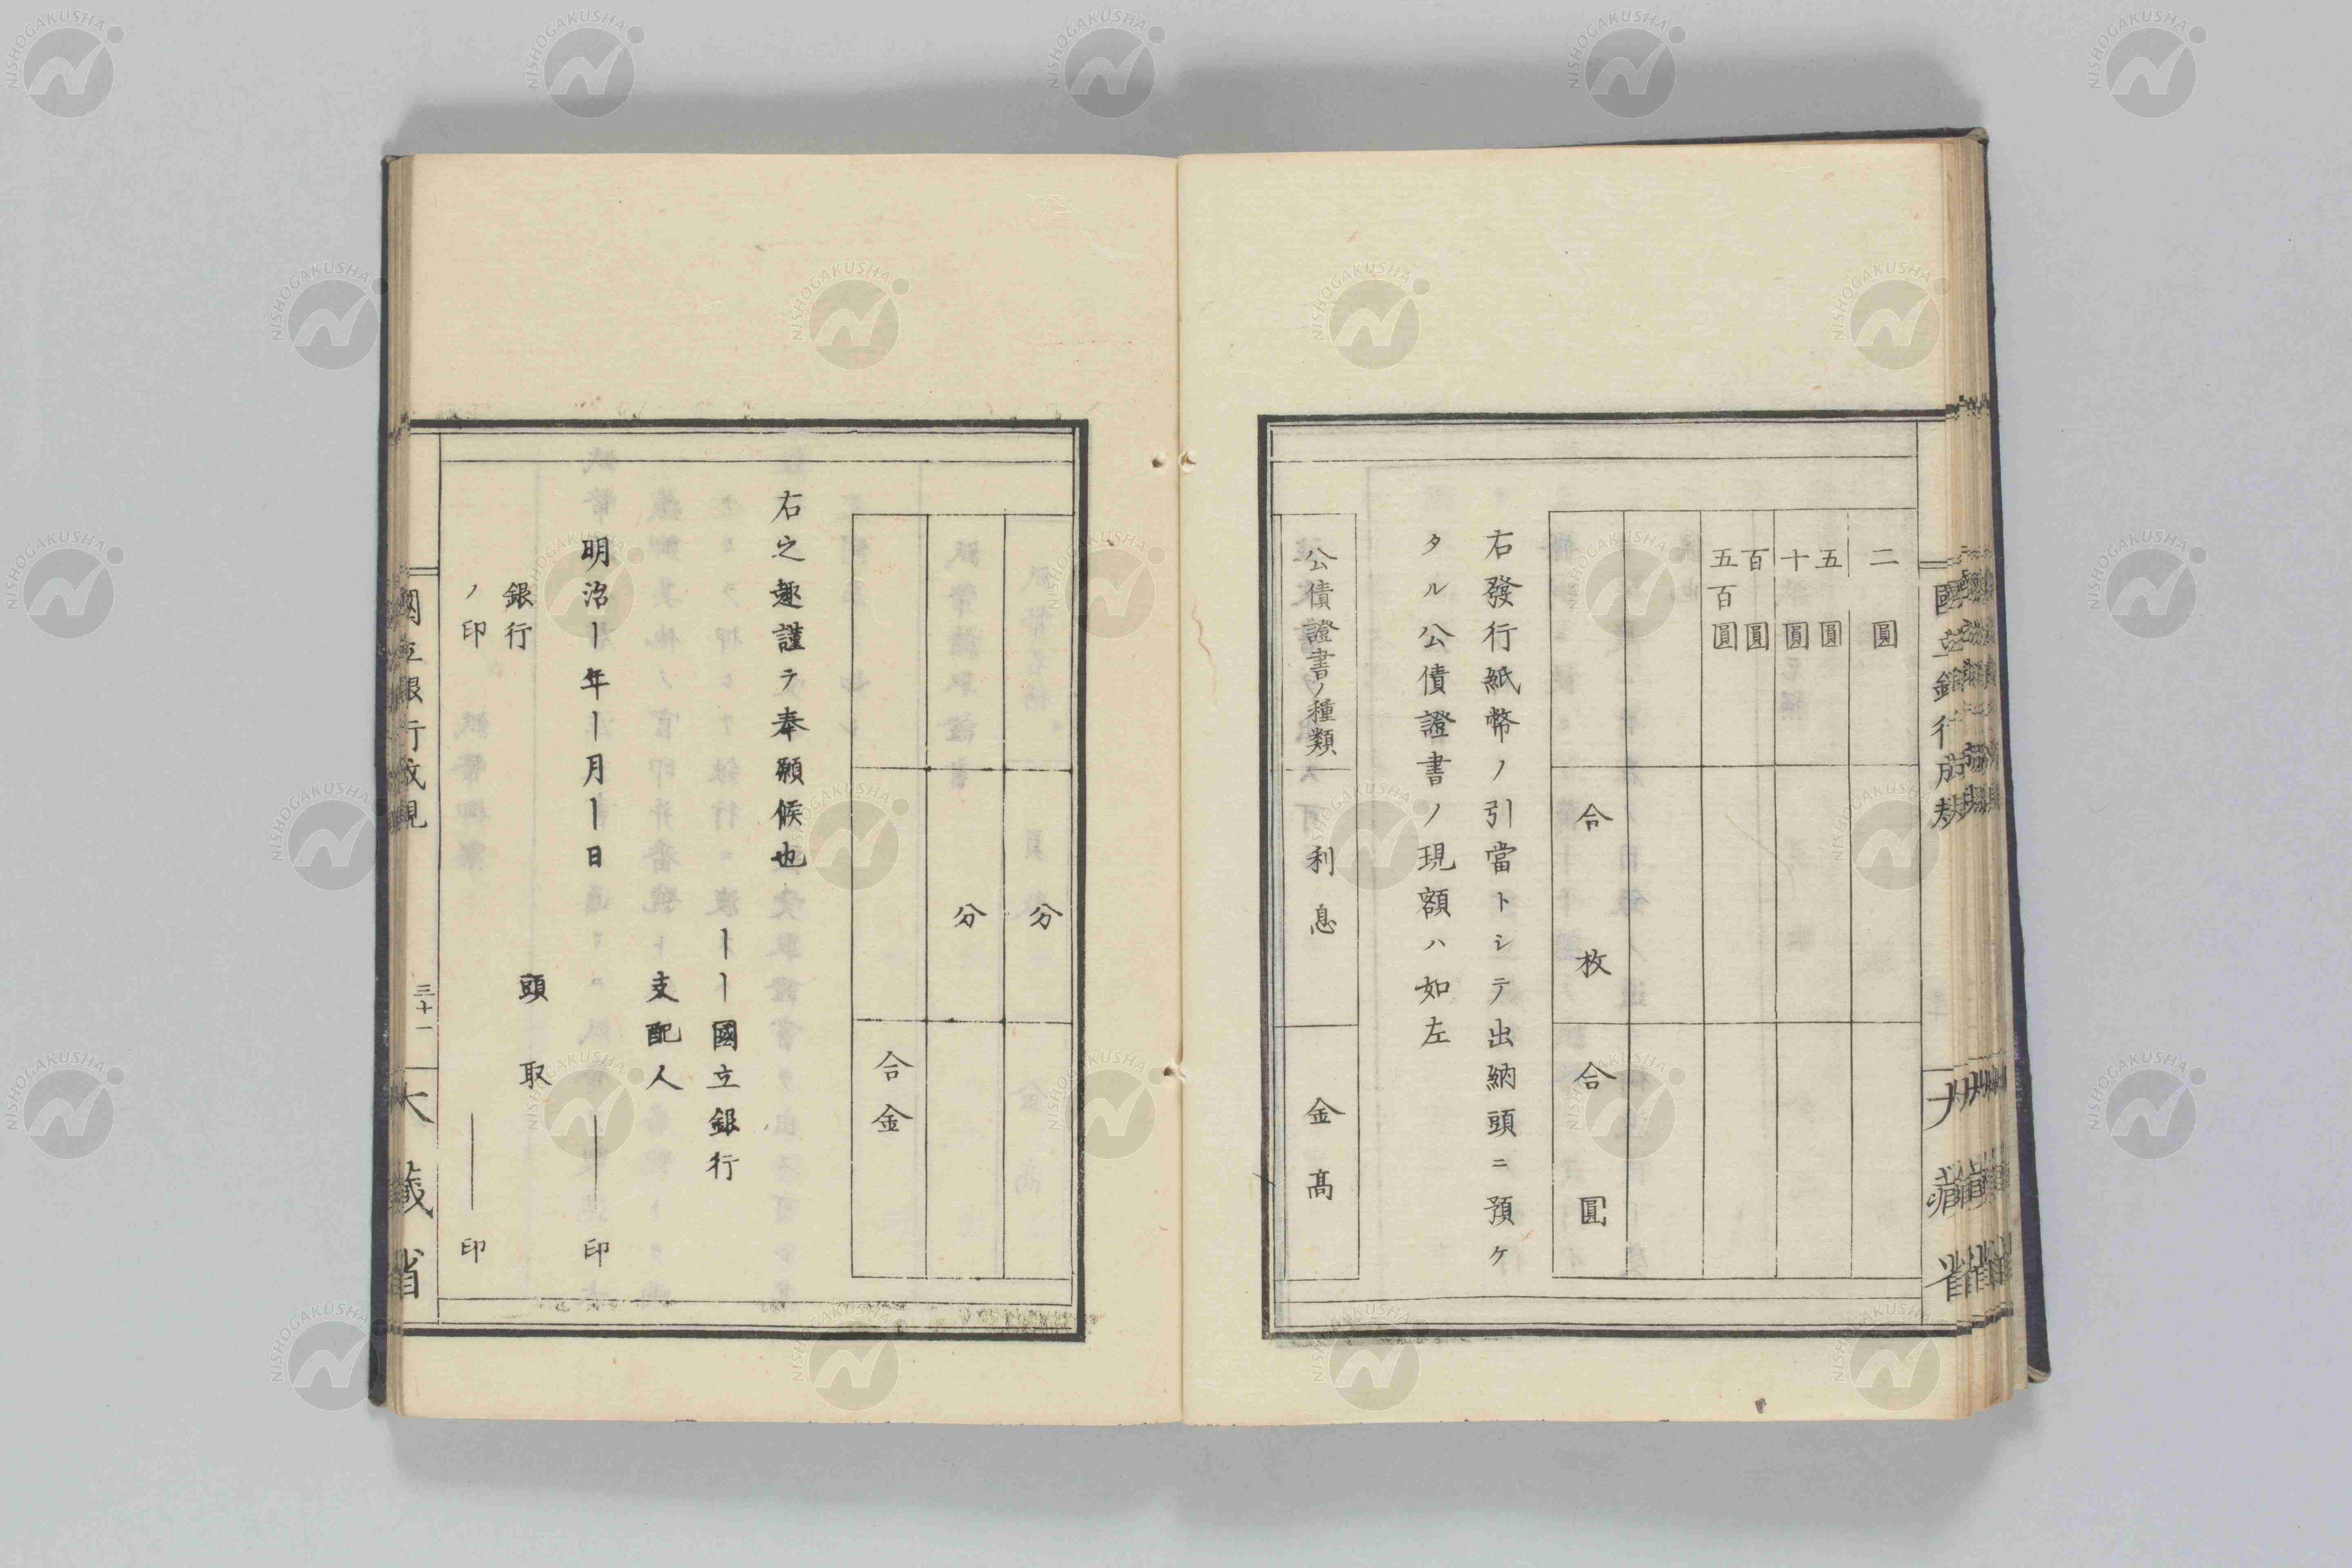 二圓
五圓
十圓
百圓
五百圓
合枚 合圓
右發行紙幣ノ引當トシテ出納頭ニ預ケ
タル公債證書ノ現額ハ如左
公債證書ノ種類 利息 金髙
分
分
合金
右之趣謹テ奉願候也
丨丨國立銀行
支配人
明治丨年丨月丨日 ――印
頭取
銀行
ノ印 ――印
國立銀行成規
三十一
大藏省
NISHOGAKUSHA